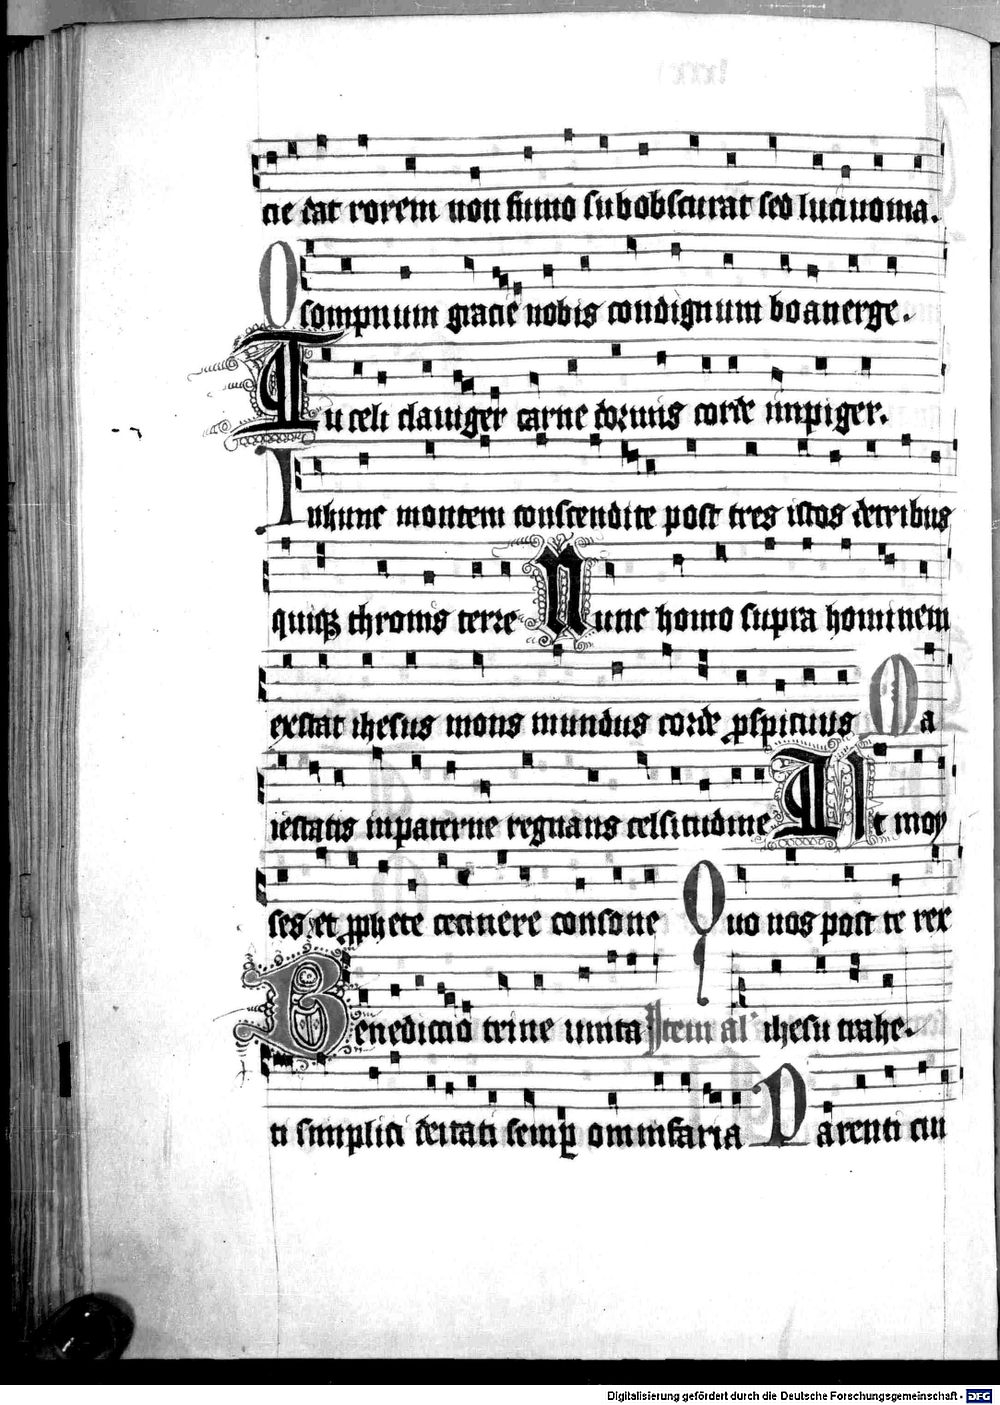 cie dat rorem non fumo subobscurat sed luci uoma.
O sompnum gracie nobis condignum boanerge.
Tu celi clauiger carne dormis corde inpiger.
In hunc montem conscendite post tres istos de tribus
quiqꝫ thronis terre Nunc homo supra hominem
exstat ihesus mons mundus corde ꝑspicuus Ma
iestatis in paterne regnans celsitudine Ut moy
ses et ꝓphete cecinere consone Quo nos post te rex
Benedictio trine unita Item al' ihesu trahe.
ti simplici deitati semꝑ omnifaria Parenti cui
Digitalisierung gefördert durch die Deutsche Forschungsgemeinschaft - DFG